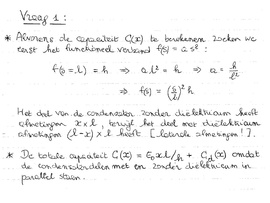 Vraag 1 :
* Alvorens de capaciteit C(x) te berekenen zoeken we
eerst het functioneel verband f(s) = a s² :
f(s = l) = h ⇒ a l² = h ⇒ a = h/l²
⇒ f(s) = (s/l)² h
Het deel van de condensator zonder diëlektricum heeft
afmetingen x × l, terwijl het deel met diëlektricum
afmetingen (l - x) × l heeft [laterale afmetingen!].
* De totale capaciteit C(x) = ε₀ x l/h + C_d(x) omdat
de condensatordelen met en zonder diëlektricum in
parallel staan.